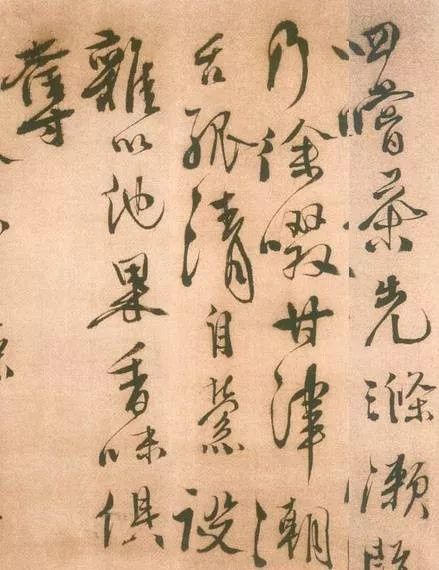 四嘗茶先滌漱
乃徐啜甘津潮
舌孤清自縈設
雜以他果香味俱
奪